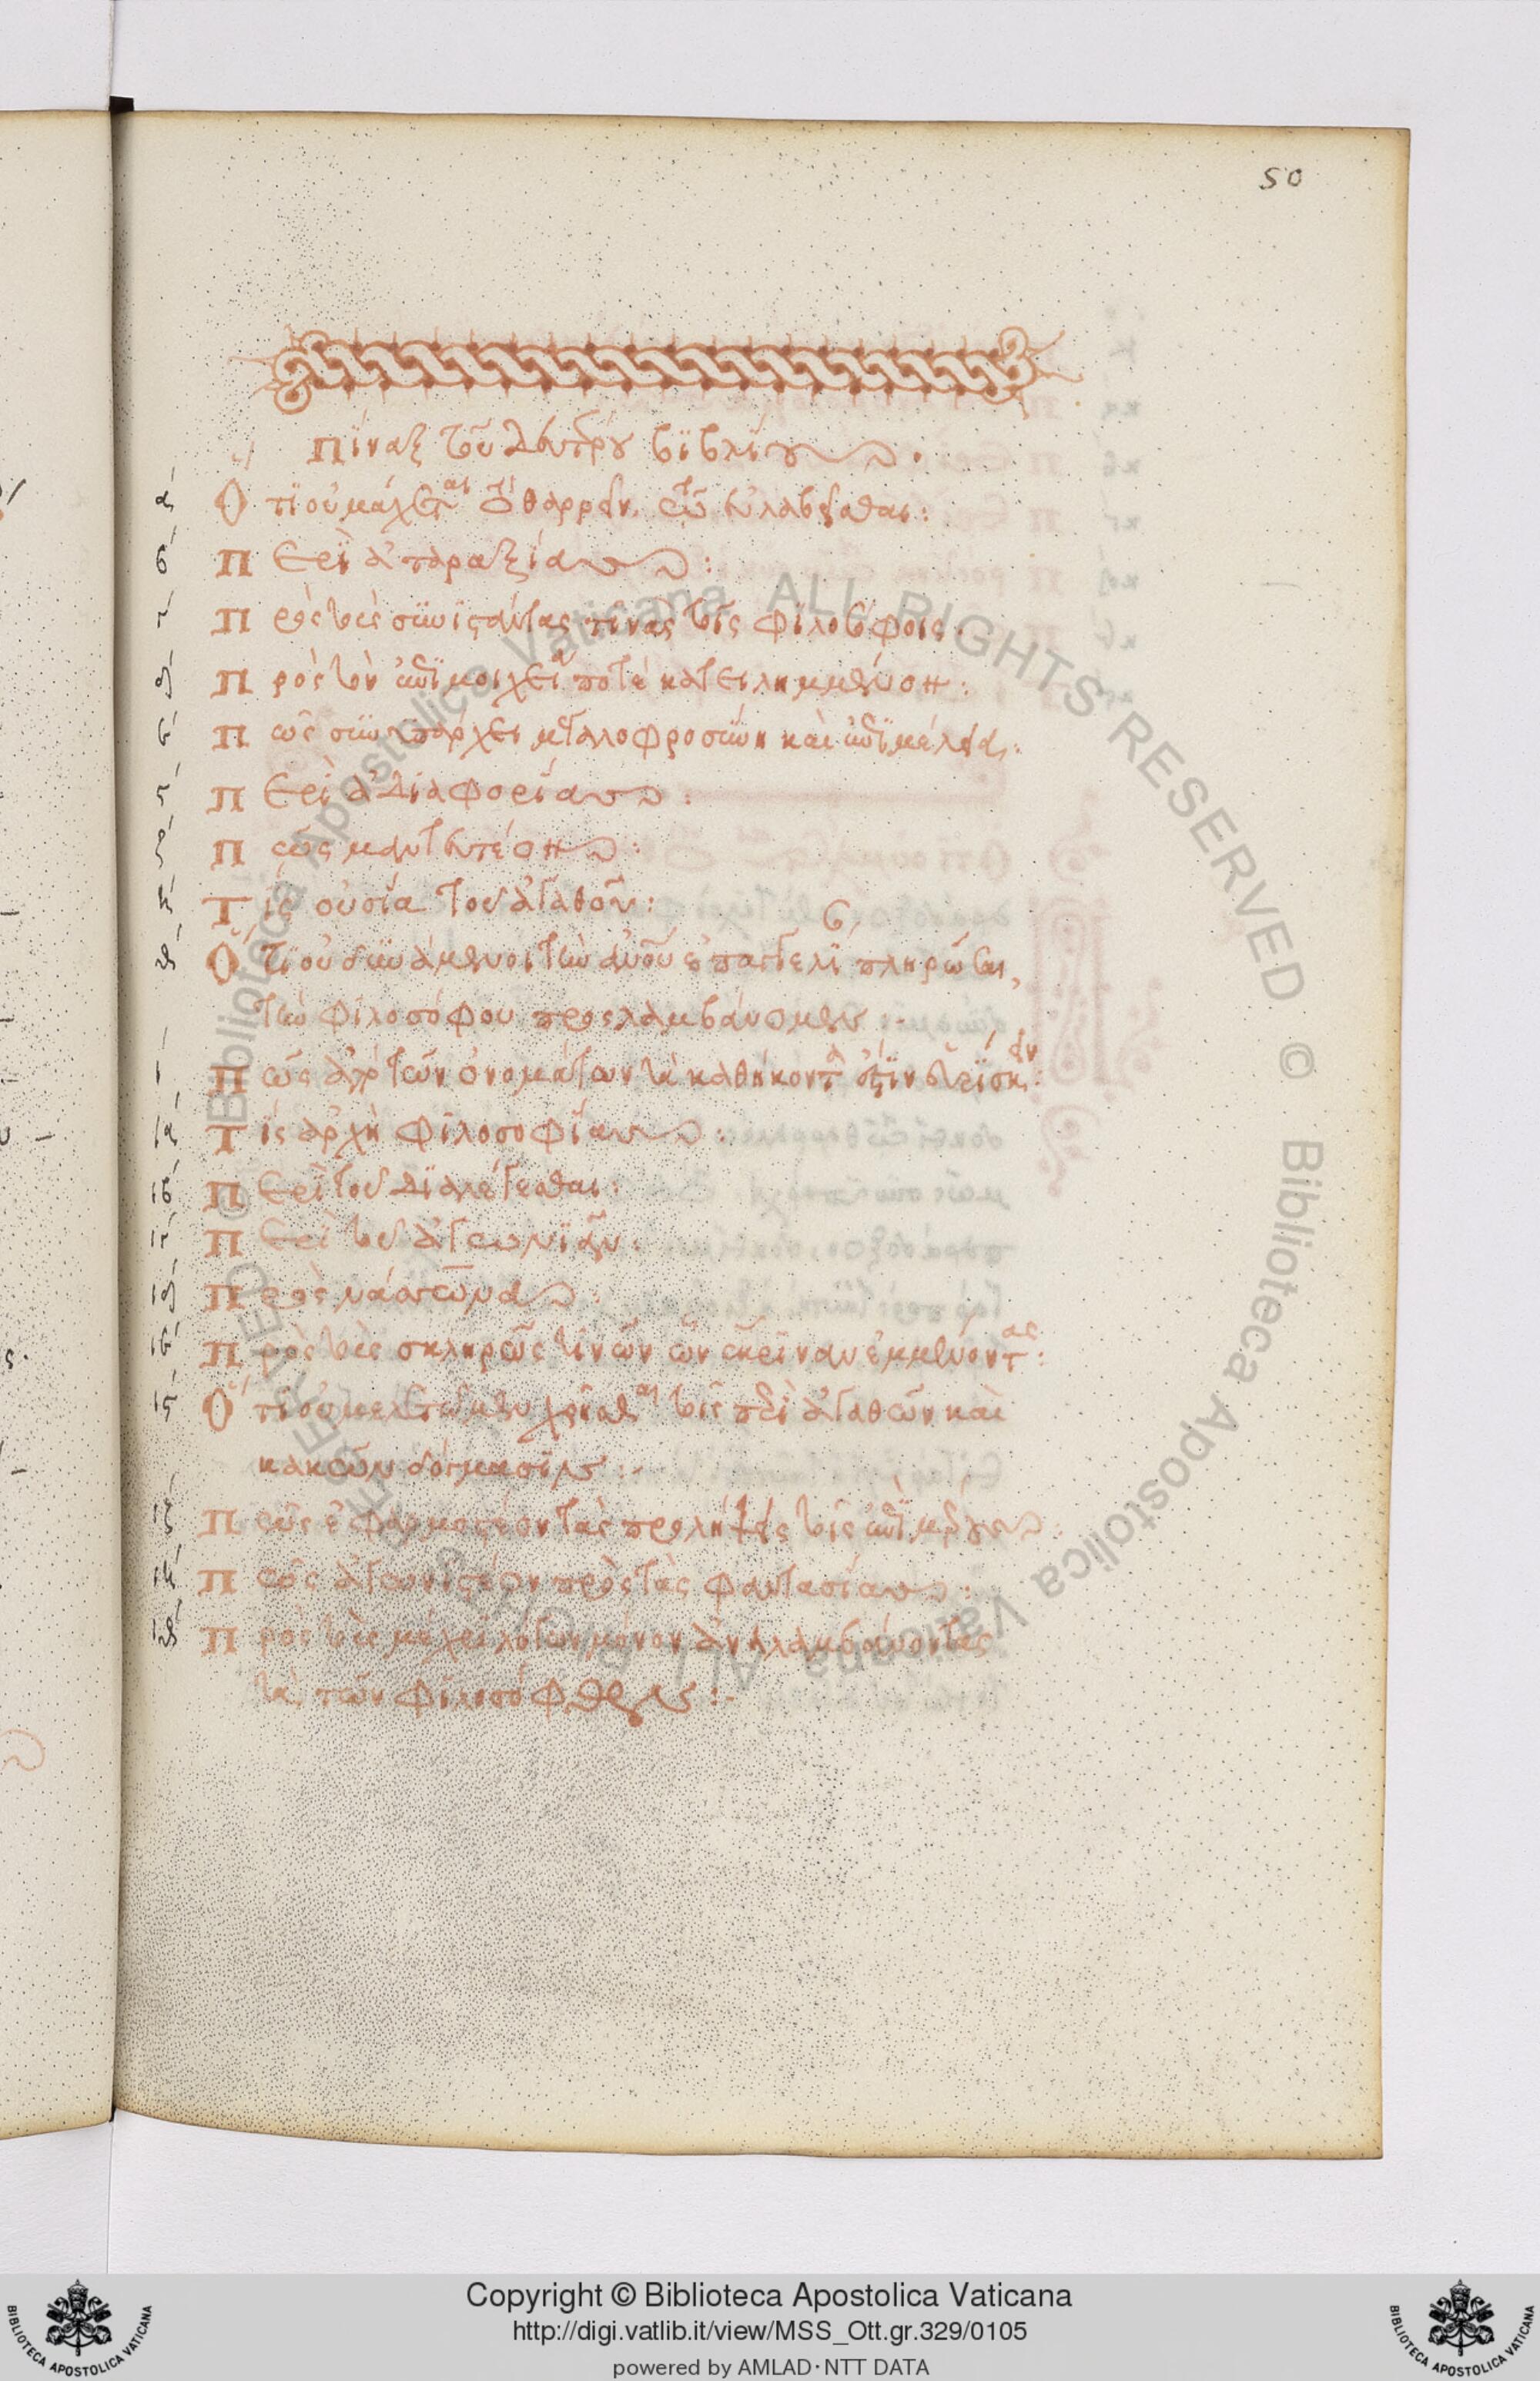 50
Πίναξ τοῦ δευτέρου βιβλίου
α Ὅτι οὐ μάχεται τὸ θαρρεῖν τῶ εὐλαβεῖσθαι:
β Περὶ ἀταραξίας:
γ Πρὸς τοὺς συνιστάντας τινὰς τοῖς φιλοσόφοις.
δ Πρὸς τὸν ἐπὶ μοιχείᾳ ποτὲ κατειλημμένον:
ε Πῶς συνυπάρχει μεγαλοφροσύνη καὶ ἐπιμέλεια:
ς Περὶ ἀδιαφορίας:
ζ Πῶς μαντευτέον:
η Τίς οὐσία τοῦ ἀγαθοῦ:
θ Ὅτι οὐ δυνάμενοι τὴν ἀνθρώπου ἐπαγγελίαν πληρῶσαι,
τὴν φιλοσόφου προσλαμβάνομεν
ι Πῶς ἀπὸ τῶν ὀνομάτων τὰ καθήκοντα ἐστὶν εὑρίσκειν:
ια Τίς ἀρχὴ φιλοσοφίας:
ιβ Περὶ τοῦ διαλέγεσθαι:
ιγ Περὶ τοῦ ἀγωνιᾶν:
ιδ Πρὸς νάσωνα:
ιε Πρὸς τοὺς σκληρῶς τισὶν ὧν ἔκριναν ἐμμένοντας:
ις Ὅτι οὐ μελετῶμεν χρῆσθαι τοῖς περὶ ἀγαθῶν καὶ
κακῶν δόγμασιν:
ιζ Πῶς ἐφαρμοστέον τὰς προλήψεις τοῖς ἐπὶ μέρους
ιη Πῶς ἀγωνιστέον πρὸς τὰς φαντασίας:
ιθ Πρὸς τοὺς μέχρι λόγου μόνον ἀναλαμβάνοντας
τὰ τῶν φιλοσόφων:
Biblioteca Apostolica Vaticana ALL RIGHTS RESERVED © Biblioteca Apostolica Vaticana ALL RIGHTS RESERVED ©
Copyright © Biblioteca Apostolica Vaticana
http://digi.vatlib.it/view/MSS_Ott.gr.329/0105
powered by AMLAD·NTT DATA
BIBLIOTECA APOSTOLICA VATICANA
BIBLIOTECA APOSTOLICA VATICANA